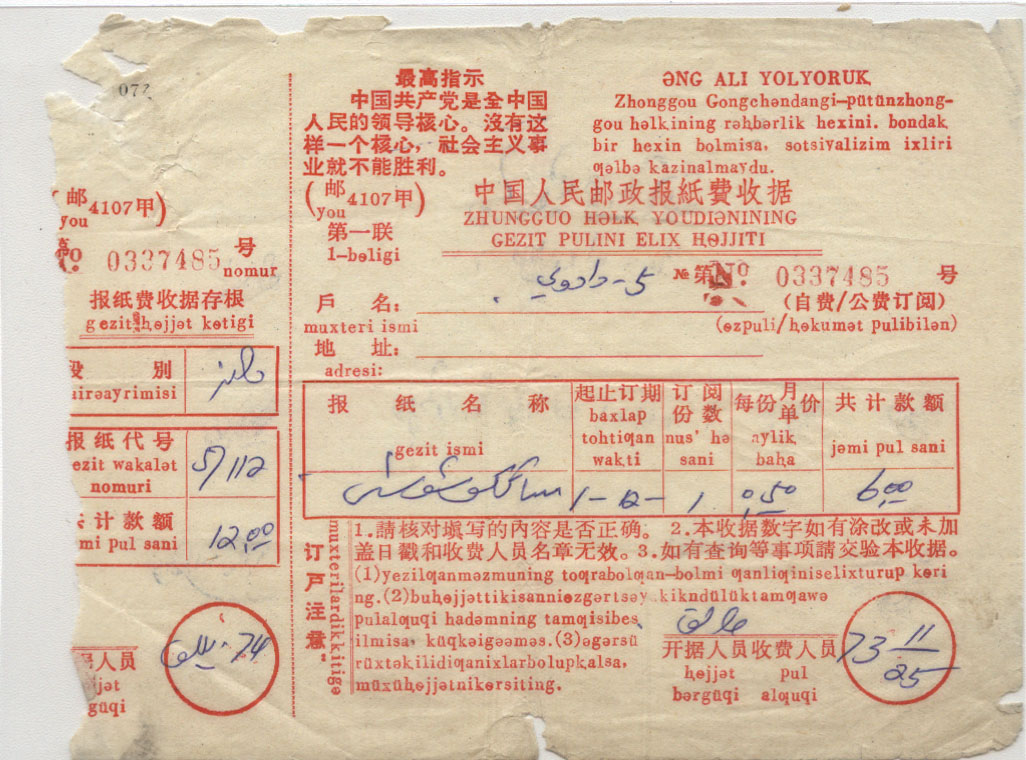 07
(邮4107甲)
you
No 0337485 号
nomur
报纸费收据存根
gezit həjjət kətigi
段 別
airəayrimisi
报纸代号
gezit wakalət
nomuri
5/112
共计款额
jəmi pul sani
12,00
74
据人员
jjət
güqi
最高指示
中国共产党是全中国
人民的领导核心。沒有这
样一个核心，社会主义事
业就不能胜利。
ƏNG ALI YOLYORUK
Zhonggou Gongchəndangi—pütünzhong-
gou həlkining rəhbərlik hexini. bondak
bir hexin bolmisa, sotsiyalizim ixliri
ƣəlbə kazinalmaydu.
(邮4107甲)
you
第一联
1—bəligi
中国人民邮政报紙費收据
ZHUNGGUO HƏLK YOUDIƏNINING
GEZIT PULINI ELIX HƏJJITI
№ 第 No. 0337485 号
戶 名：
muxteri ismi
(自费/公费订阅)
(əzpuli/həkumət pulibilən)
地 址：
adresi:
报 纸 名 称
gezit ismi
起止订期
baxlap
tohtiƣan
wakti
订 阅
份 数
nus' hə
sani
每份月单价
aylik
baha
共 计 款 额
jəmi pul sani
1-12- 1 0,50 6,00
订戶注意：
muxterilardikkitigə
1.請核对填写的內容是否正确。 2.本收据数字如有涂改或未加
盖日戳和收费人员名章无效。3.如有查询等事项請交验本收据。
(1)yezilƣanməzmuning toƣrabolƣan—bolmi ƣanliƣiniselixturup kəri
ng.(2)buhəjjəttikisanniəzgərtsəy kikndülüktamƣawə
pulalƣuqi hadəmning tamƣisibes
ilmisa, küqkəigəəməs.(3)əgərsü
rüxtəkilidiƣanixlarbolupkalsa,
müxühəjjətnikərsiting.
开据人员收费人员
həjjət pul
bərgüqi alƣuqi
73 11
25